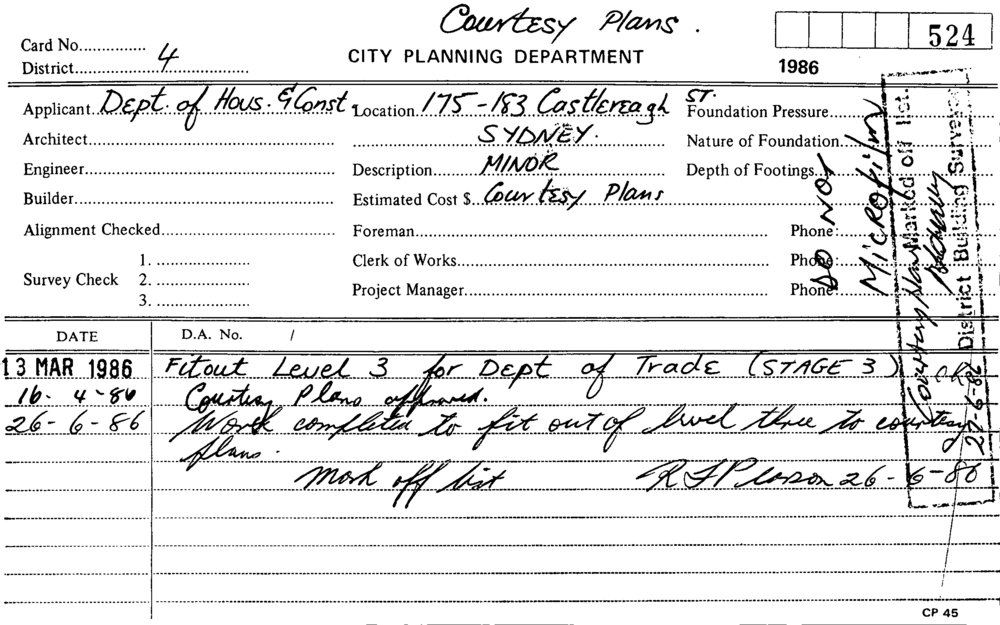 Courtesy Plans.
524
Card No.
District 4
CITY PLANNING DEPARTMENT
1986
Applicant Dept. of Hous. & Const. Location 175-183 Castlereagh ST. Foundation Pressure
Architect SYDNEY. Nature of Foundation
Engineer Description MINOR Depth of Footings
Builder Estimated Cost $ Courtesy Plans
Alignment Checked Foreman Phone
1. Clerk of Works Phone
Survey Check 2.
3. Project Manager Phone
DO NOT
MICROFILM
Marked off
District Building Surveyor
27-6-86
DATE D.A. No. /
13 MAR 1986 Fitout Level 3 for Dept of Trade (STAGE 3)
16-4-86 Courtesy Plans approved.
26-6-86 Work completed to fit out of level three to courtesy
plans.
Mark off list R F Pearson 26-6-86
CP 45